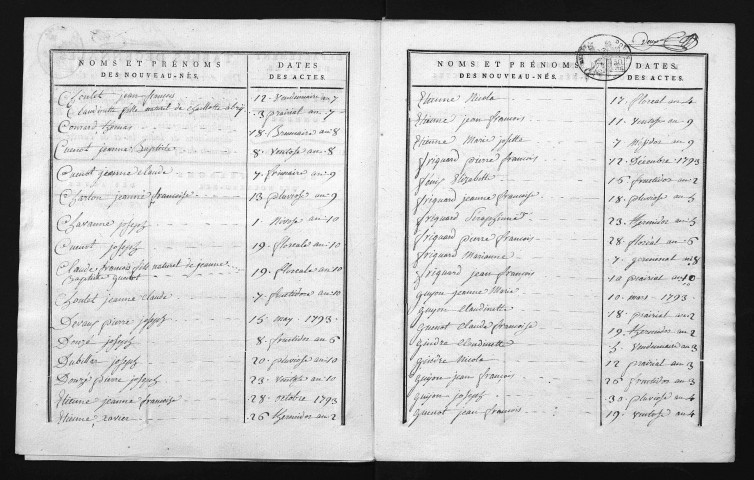 NOMS ET PRÉNOMS
DES NOUVEAU-NÉS.
DATES
DES ACTES.
Choulet jean francois 12 Vendemiaire an 7
Claudinite fille naturel de 3 prairial an 7
Conrard thomas 18 Brumaire an 8
Cuenot jeanne Baptiste 8 Ventose an 8
Cuenot jeanne claude 7 frimaire an 9
Charton jeanne francoise 13 pluviose an 9
Chavanne joseph 1 Nivose an 10
Cuenot joseph 19 floreale an 10
Claude francois fils naturel de jeanne
Baptiste Cuenot 19 floreale an 10
Choulet jeanne claude 7 fructidore an 10
Devaux pierre joseph 15 may 1793
Douzé joseph 8 fructidor an 6
Dubillar joseph 20 pluviose an 10
Douzé pierre joseph 23 Ventose an 10
Etienne jeanne francoise 28 octobre 1793
Etienne xavier 26 thermidor an 2
Deux
NOMS ET PRÉNOMS
DES NOUVEAU-NÉS.
DATES
DES ACTES.
Etienne Nicola 17 floreal an 4
Etienne jean francois 11 Ventose an 9
Etienne Marie josette 7 an 9
friquard pierre francois 12 Décembre 1793
Elizabette 15 fructidor an 2
friquard jeanne francoise 18 pluviose an 5
friquard Seraphine 23 thermidor an 5
friquard pierre francois 28 floreal an 6
friquard Marianne 7 germinal an 8
friquard jean francois 10 prairial an 10
guyon jeanne Marie 10 mars 1793
guyon claudinette 18 prairial an 2
guenot claude francoise 19 thermidor an 2
guidre claudinette 5 Vendemiaire an 3
guidre Nicola 12 prairial an 3
guyon jean françois 26 fructidor an 3
guyon joseph 30 pluviose an 4
guenot jean francois 19 Ventose an 4